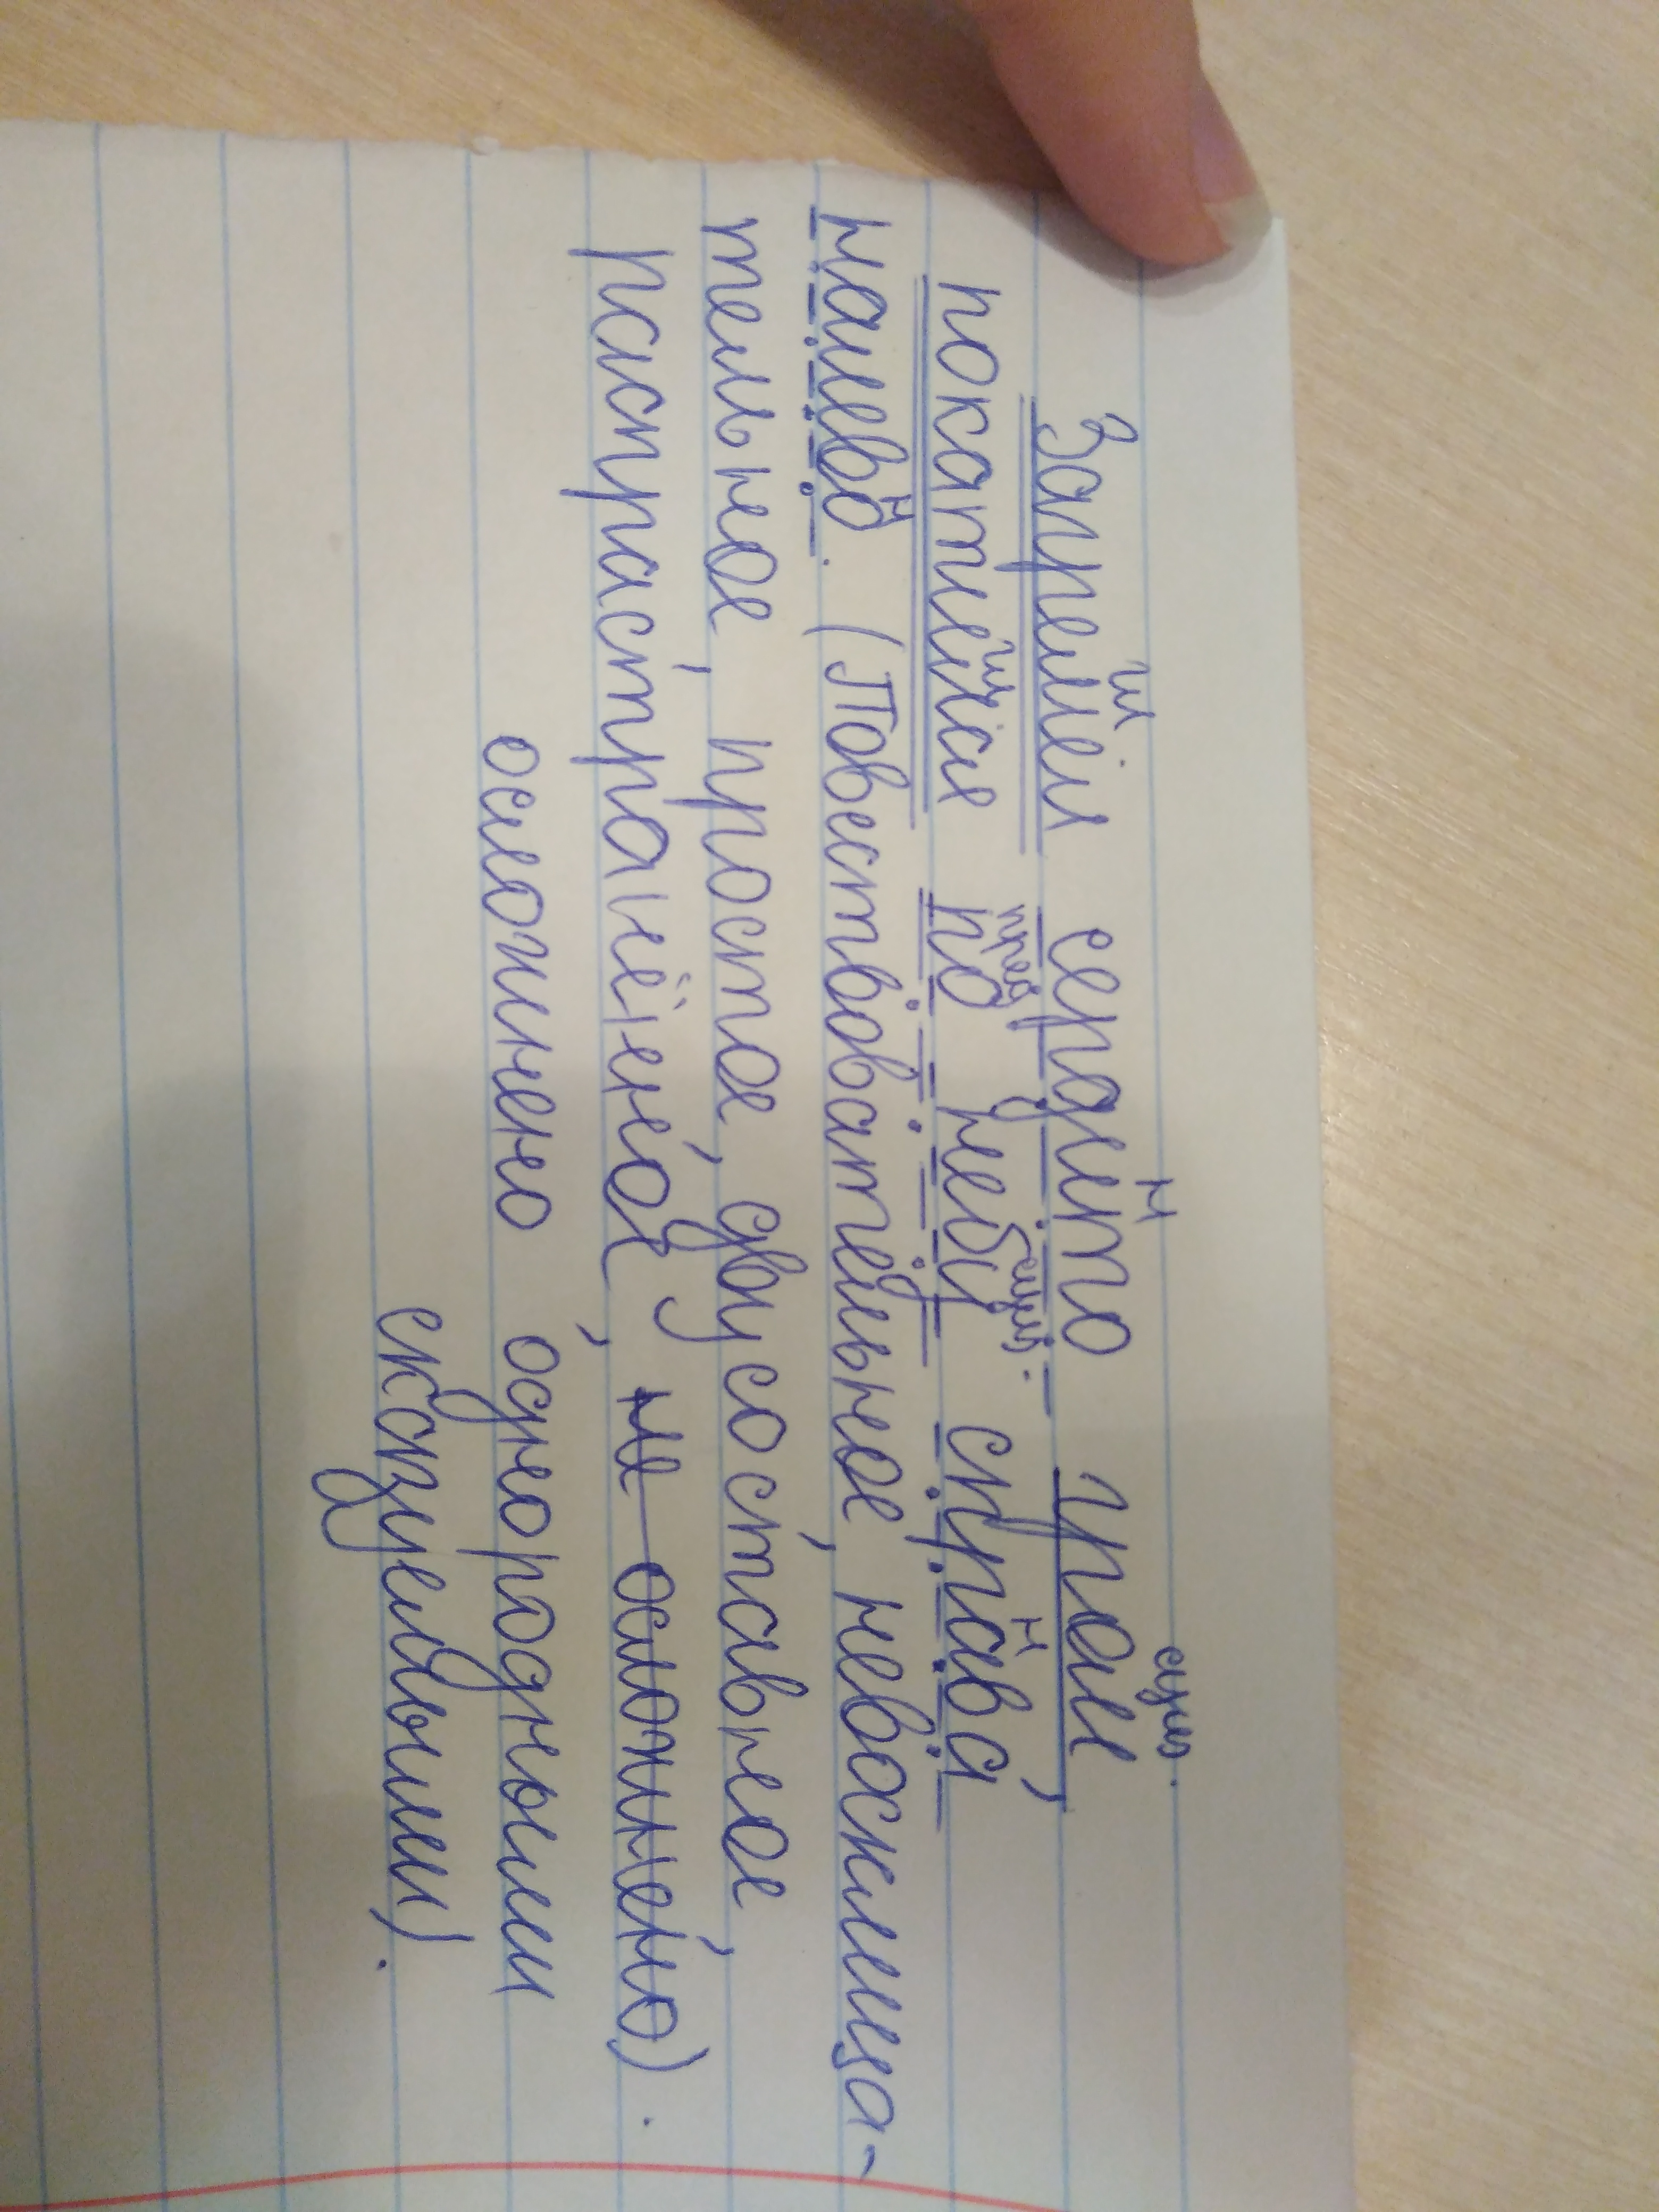 гл. н сущ.
Загремел сердито гром,
гл пред. сущ. н
покатился по небу справа
н
налево. (Повествовательное, невосклица-
тельное, простое, двусоставное,
распространённое, не осложнено).
осложнено однородными
сказуемыми).